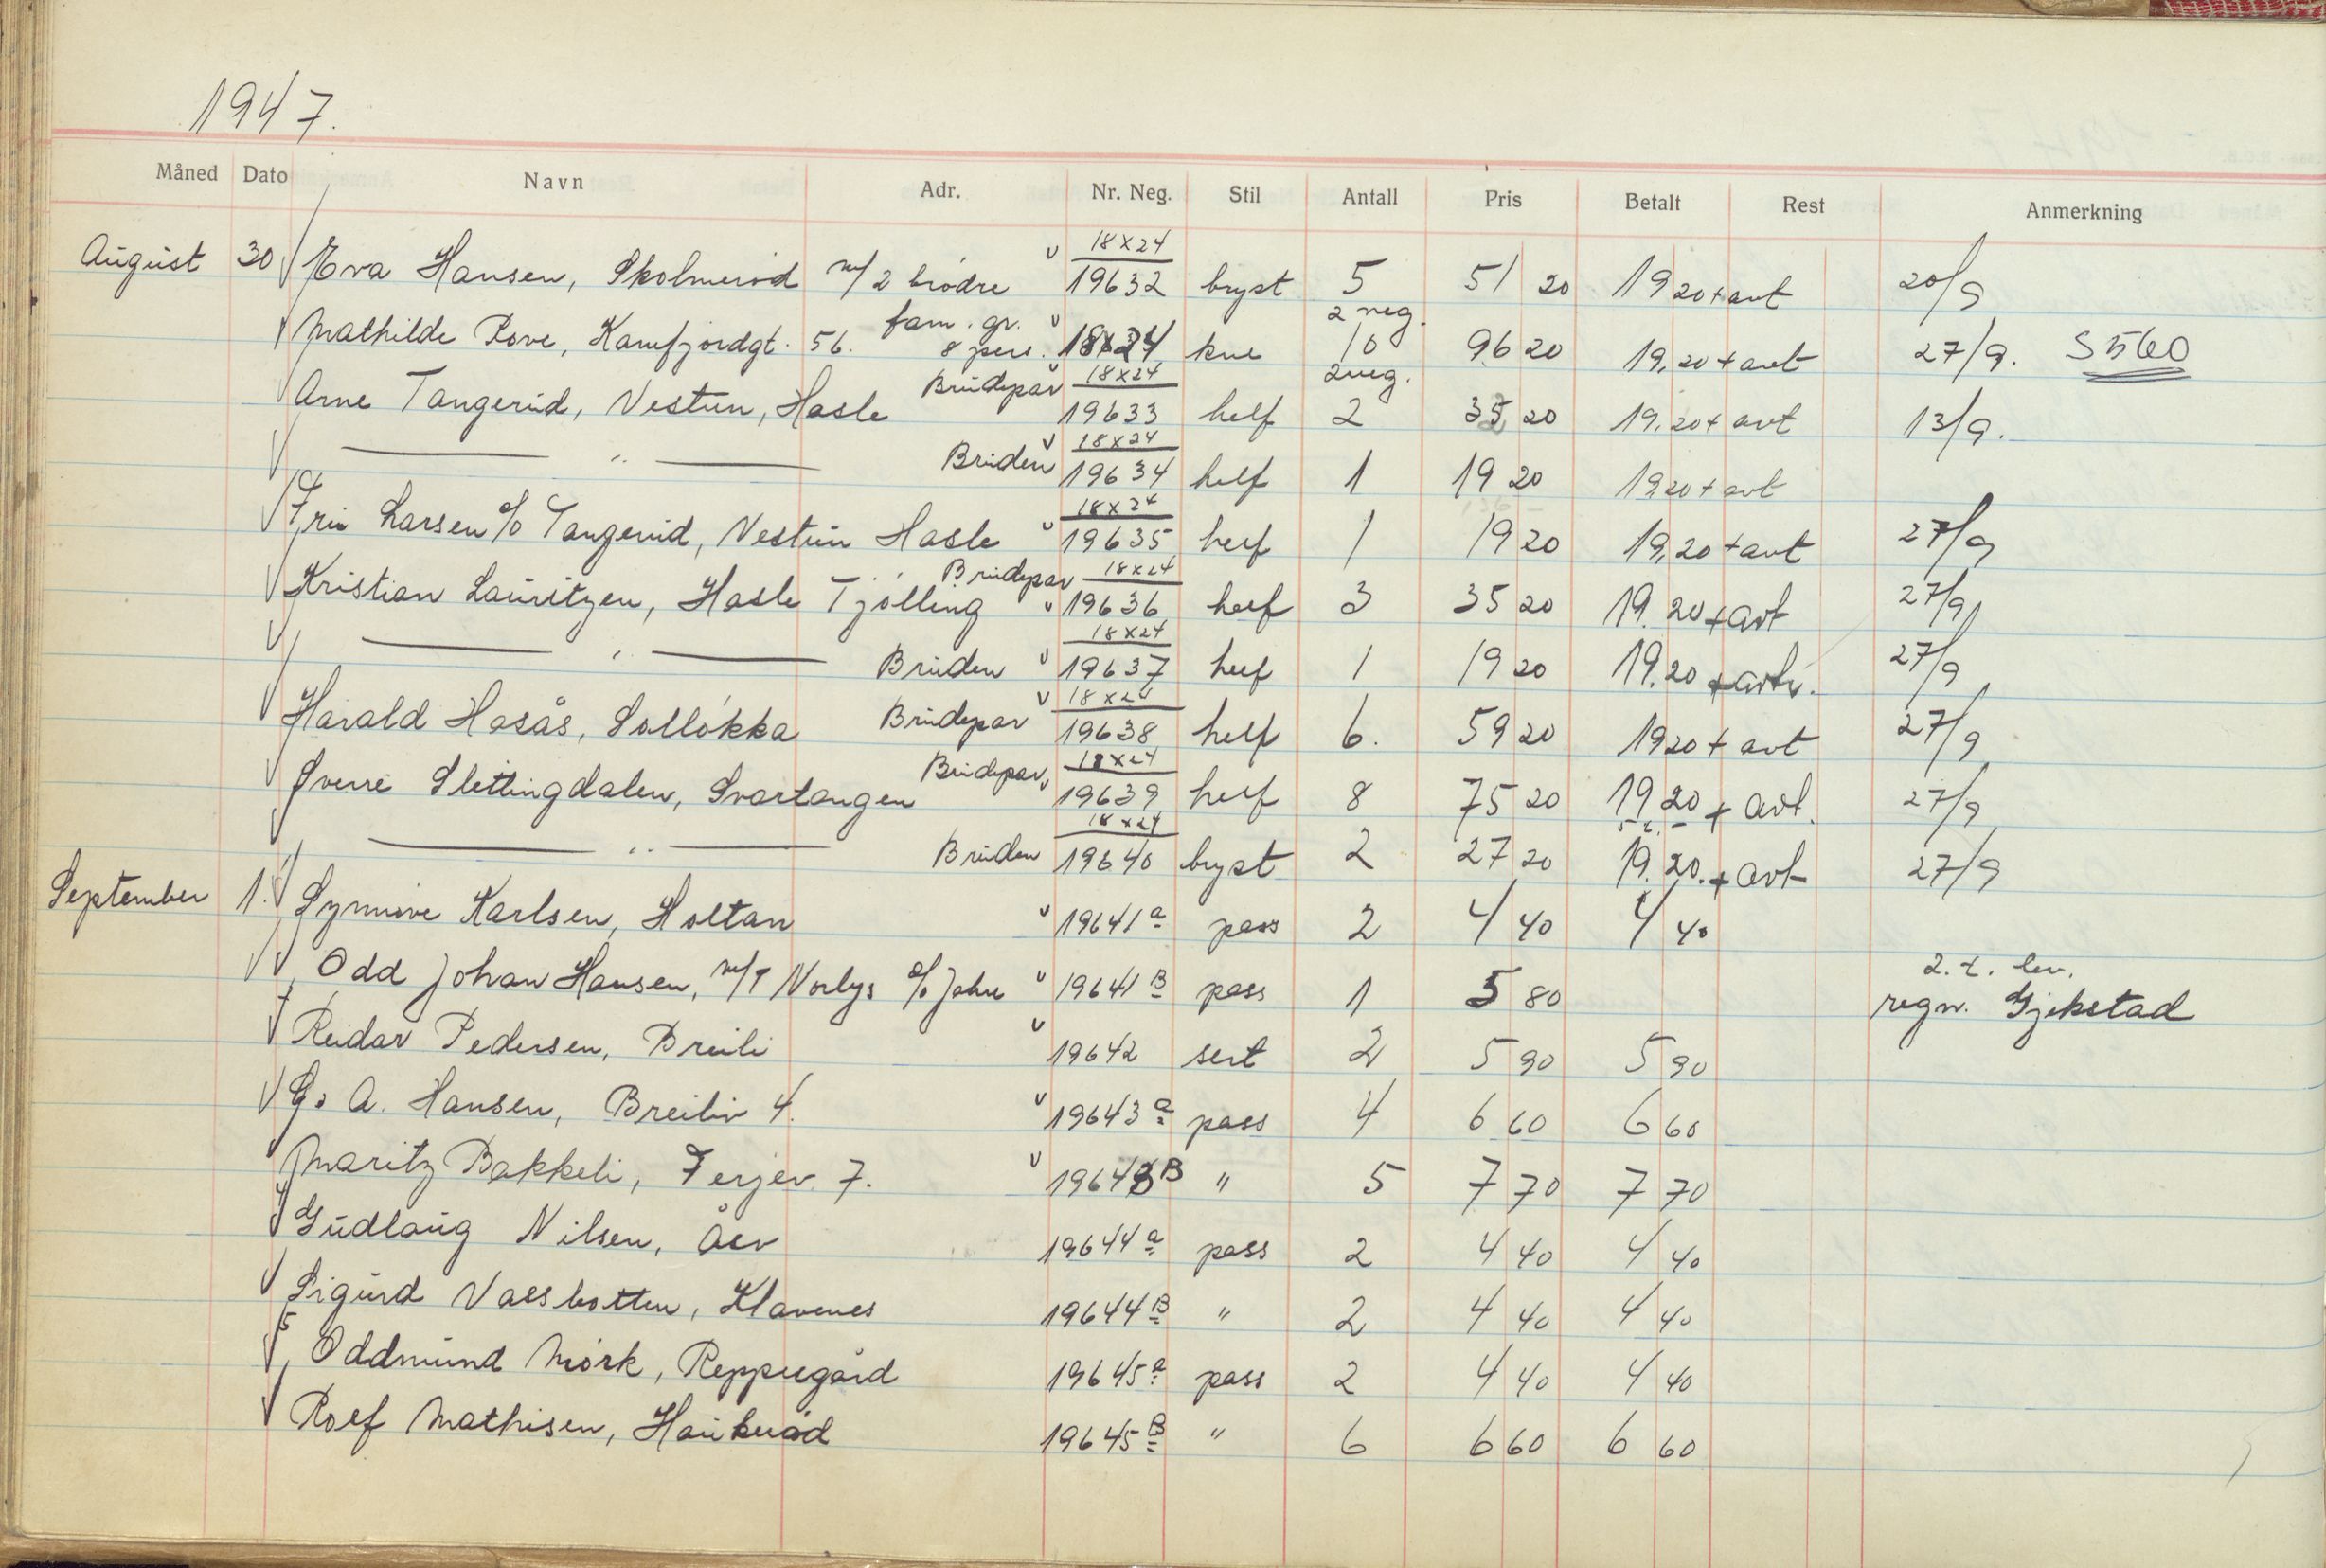 1947.
Måned Dato Navn Adr. Nr. Neg. Stil Antall Pris Betalt Rest Anmerkning
18x24
August 30 Eva Hansen, Skolmerød m/2 brødre 19632 bryst 5 51 20 19 20 + avt 20/9
fam. gr. 2 neg.
Mathilde Rove, Kamfjordgt. 56. 8 pers. 18x24 kne 10 96 20 19,20 + avt 27/9. S 560
Brudepar 18x24 2 neg.
Arne Tangerud, Vestun, Hasle 19633 helf 2 35 20 19,20 + avt 13/9.
18x24
— " — Bruden 19634 helf 1 19 20 19 20 + avt
18x24
Fru Larsen c/o Tangerud, Vestun Hasle 19635 helf 1 19 20 19,20 + avt 27/9
Brudepar 18x24
Kristian Lauritzen, Hasle Tjølling 19636 helf 3 35 20 19.20 + avt 27/9
18x24
— " — Bruden 19637 helf 1 19 20 19.20 + avt. 27/9
18x24
Harald Hasås, Solløkka Brudepar 19638 helf 6. 59 20 19 20 + avt 27/9
Brudepar 18x24
Sverre Slettingdalen, Svartangen 19639 helf 8 75 20 19 20 + avt. 27/9
18x24
— " — Bruden 19640 bryst 2 27 20 19.20. + avt 27/9
September 1. Synnøve Karlsen, Holtan 19641a pass 2 4 40 4 40
2. t. lev.
Odd Johan Hansen, m/T Norlys c/o Jahre 19641B pass 1 5 80 regn. Gjekstad
Reidar Pedersen, Breili 19642 sert 2 5 90 5 90
G. A. Hansen, Breiliv 4. 19643a pass 4 6 60 6 60
Maritz Bakkeli, Ferjev. 7. 19643B " 5 7 70 7 70
Gudlaug Nilsen, 19644a pass 2 4 40 4 40
Sigurd Valsbotten, Klavenes 19644B " 2 4 40 4 40
Oddmund Mørk, Reppegård 19645a pass 2 4 40 4 40
Rolf Mathisen, Haukerød 19645B " 6 6 60 6 60